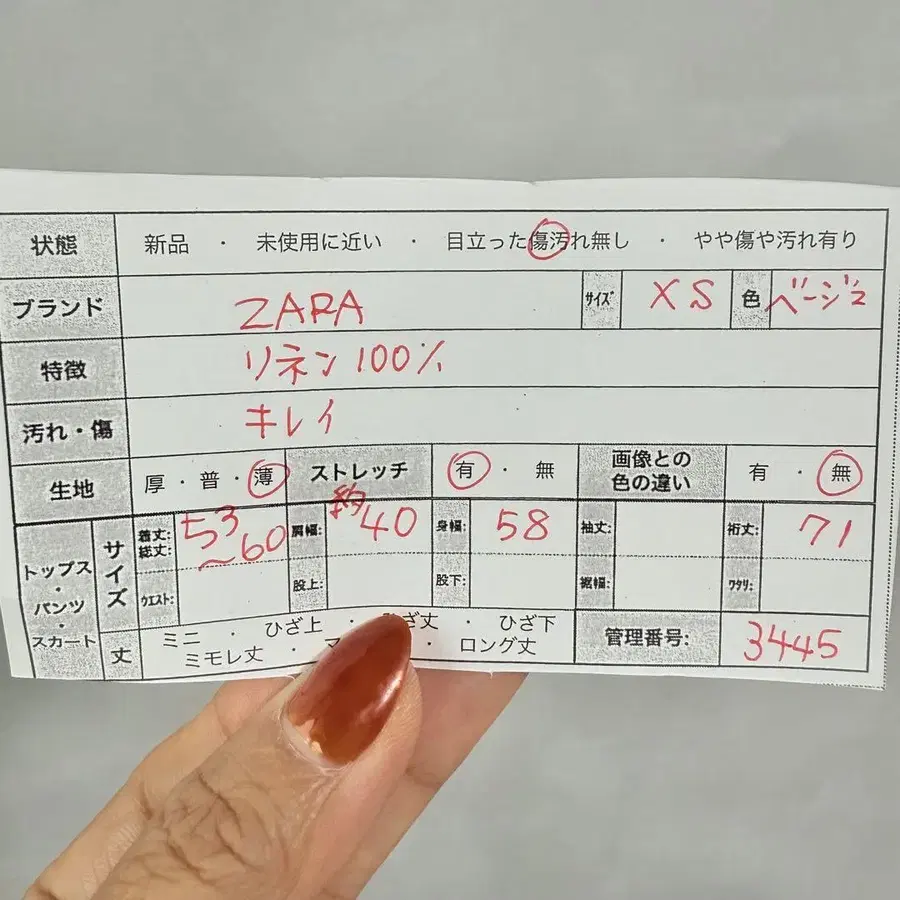 状態 新品 ・ 未使用に近い ・ 目立った傷汚れ無し ・ やや傷や汚れ有り
ブランド ZARA サイズ XS 色 ベージュ
特徴 リネン100%
汚れ・傷 キレイ
生地 厚・普・薄 ストレッチ 有・無 画像との色の違い 有・無
トップス・パンツ・スカート サイズ 着丈:総丈: 53～60 肩幅: 約40 身幅: 58 袖丈: 裄丈: 71
ウエスト: 股上: 股下: 裾幅: ワタリ:
丈 ミニ ・ ひざ上 ・ ひざ丈 ・ ひざ下
ミモレ丈 ・ ・ ロング丈 管理番号: 3445